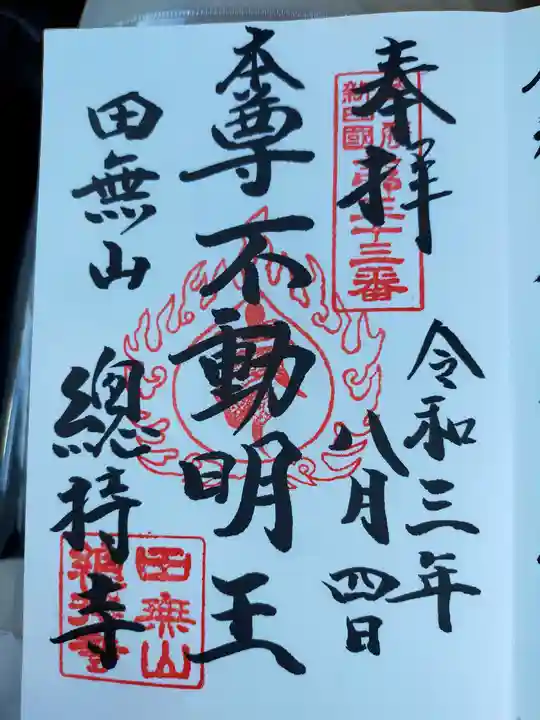 奉拝
令和三年
八月四日
本尊不動明王
田無山
總持寺
新四國
第三十三番
田無山
總持寺